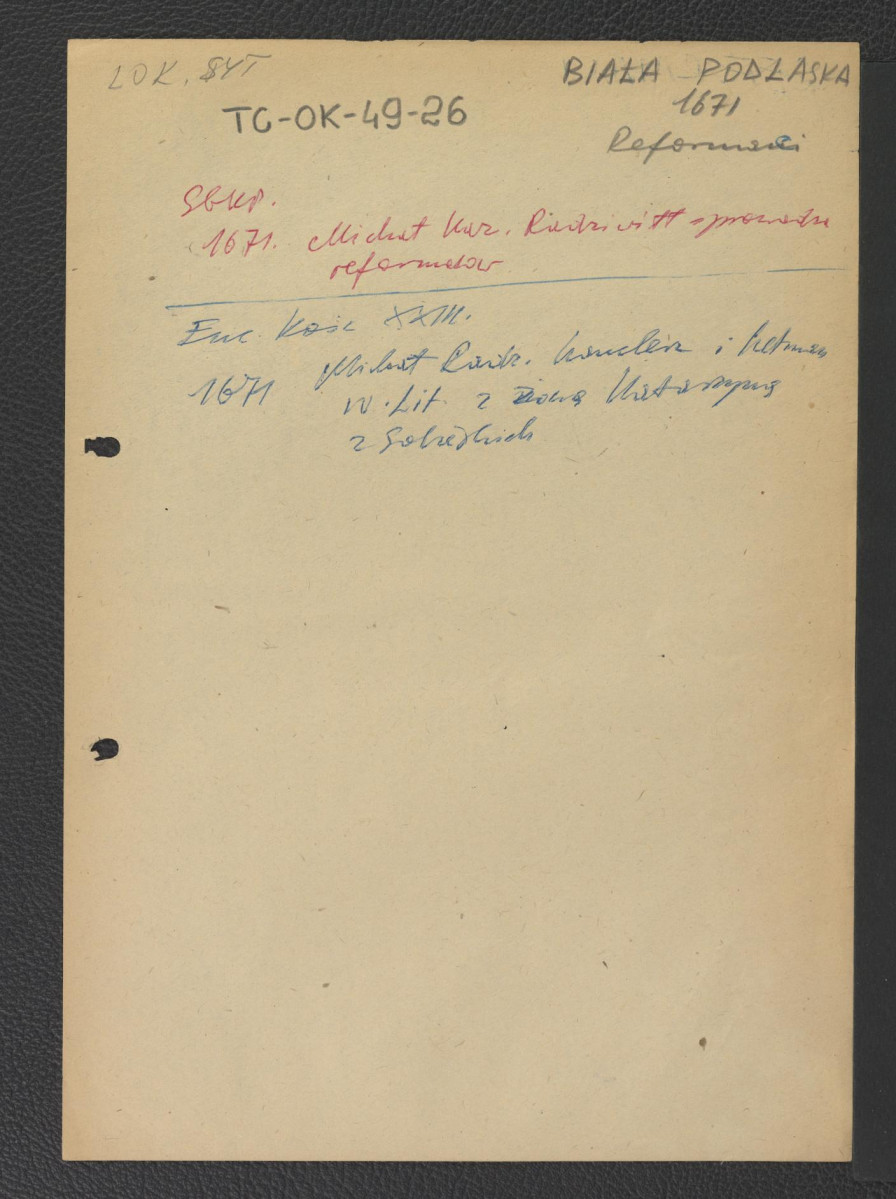 LOK. SYT
BIAŁA PODLASKA
TC-OK-49-26
1671
Reformaci
SGKP.
1671. Michał Kaz. Radziwiłł sprowadza
reformatów
Enc. Kośc XXIII.
1671 Michał Radz. kanclerz i hetman
w. Lit. z żoną Katarzyną
z Sobieskich